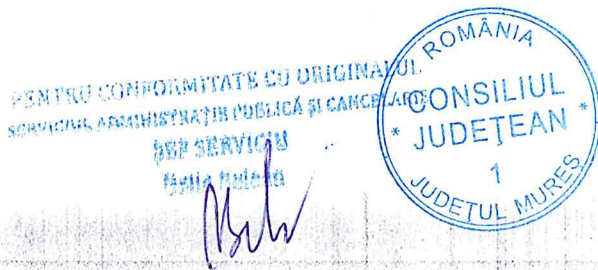 PENTRU CONFORMITATE CU ORIGINALUL
SERVICIUL ADMINISTRAȚIE PUBLICĂ ȘI CANCELARIE
ȘEF SERVICIU
ROMÂNIA
* CONSILIUL *
JUDEŢEAN
1
JUDEŢUL MUREŞ